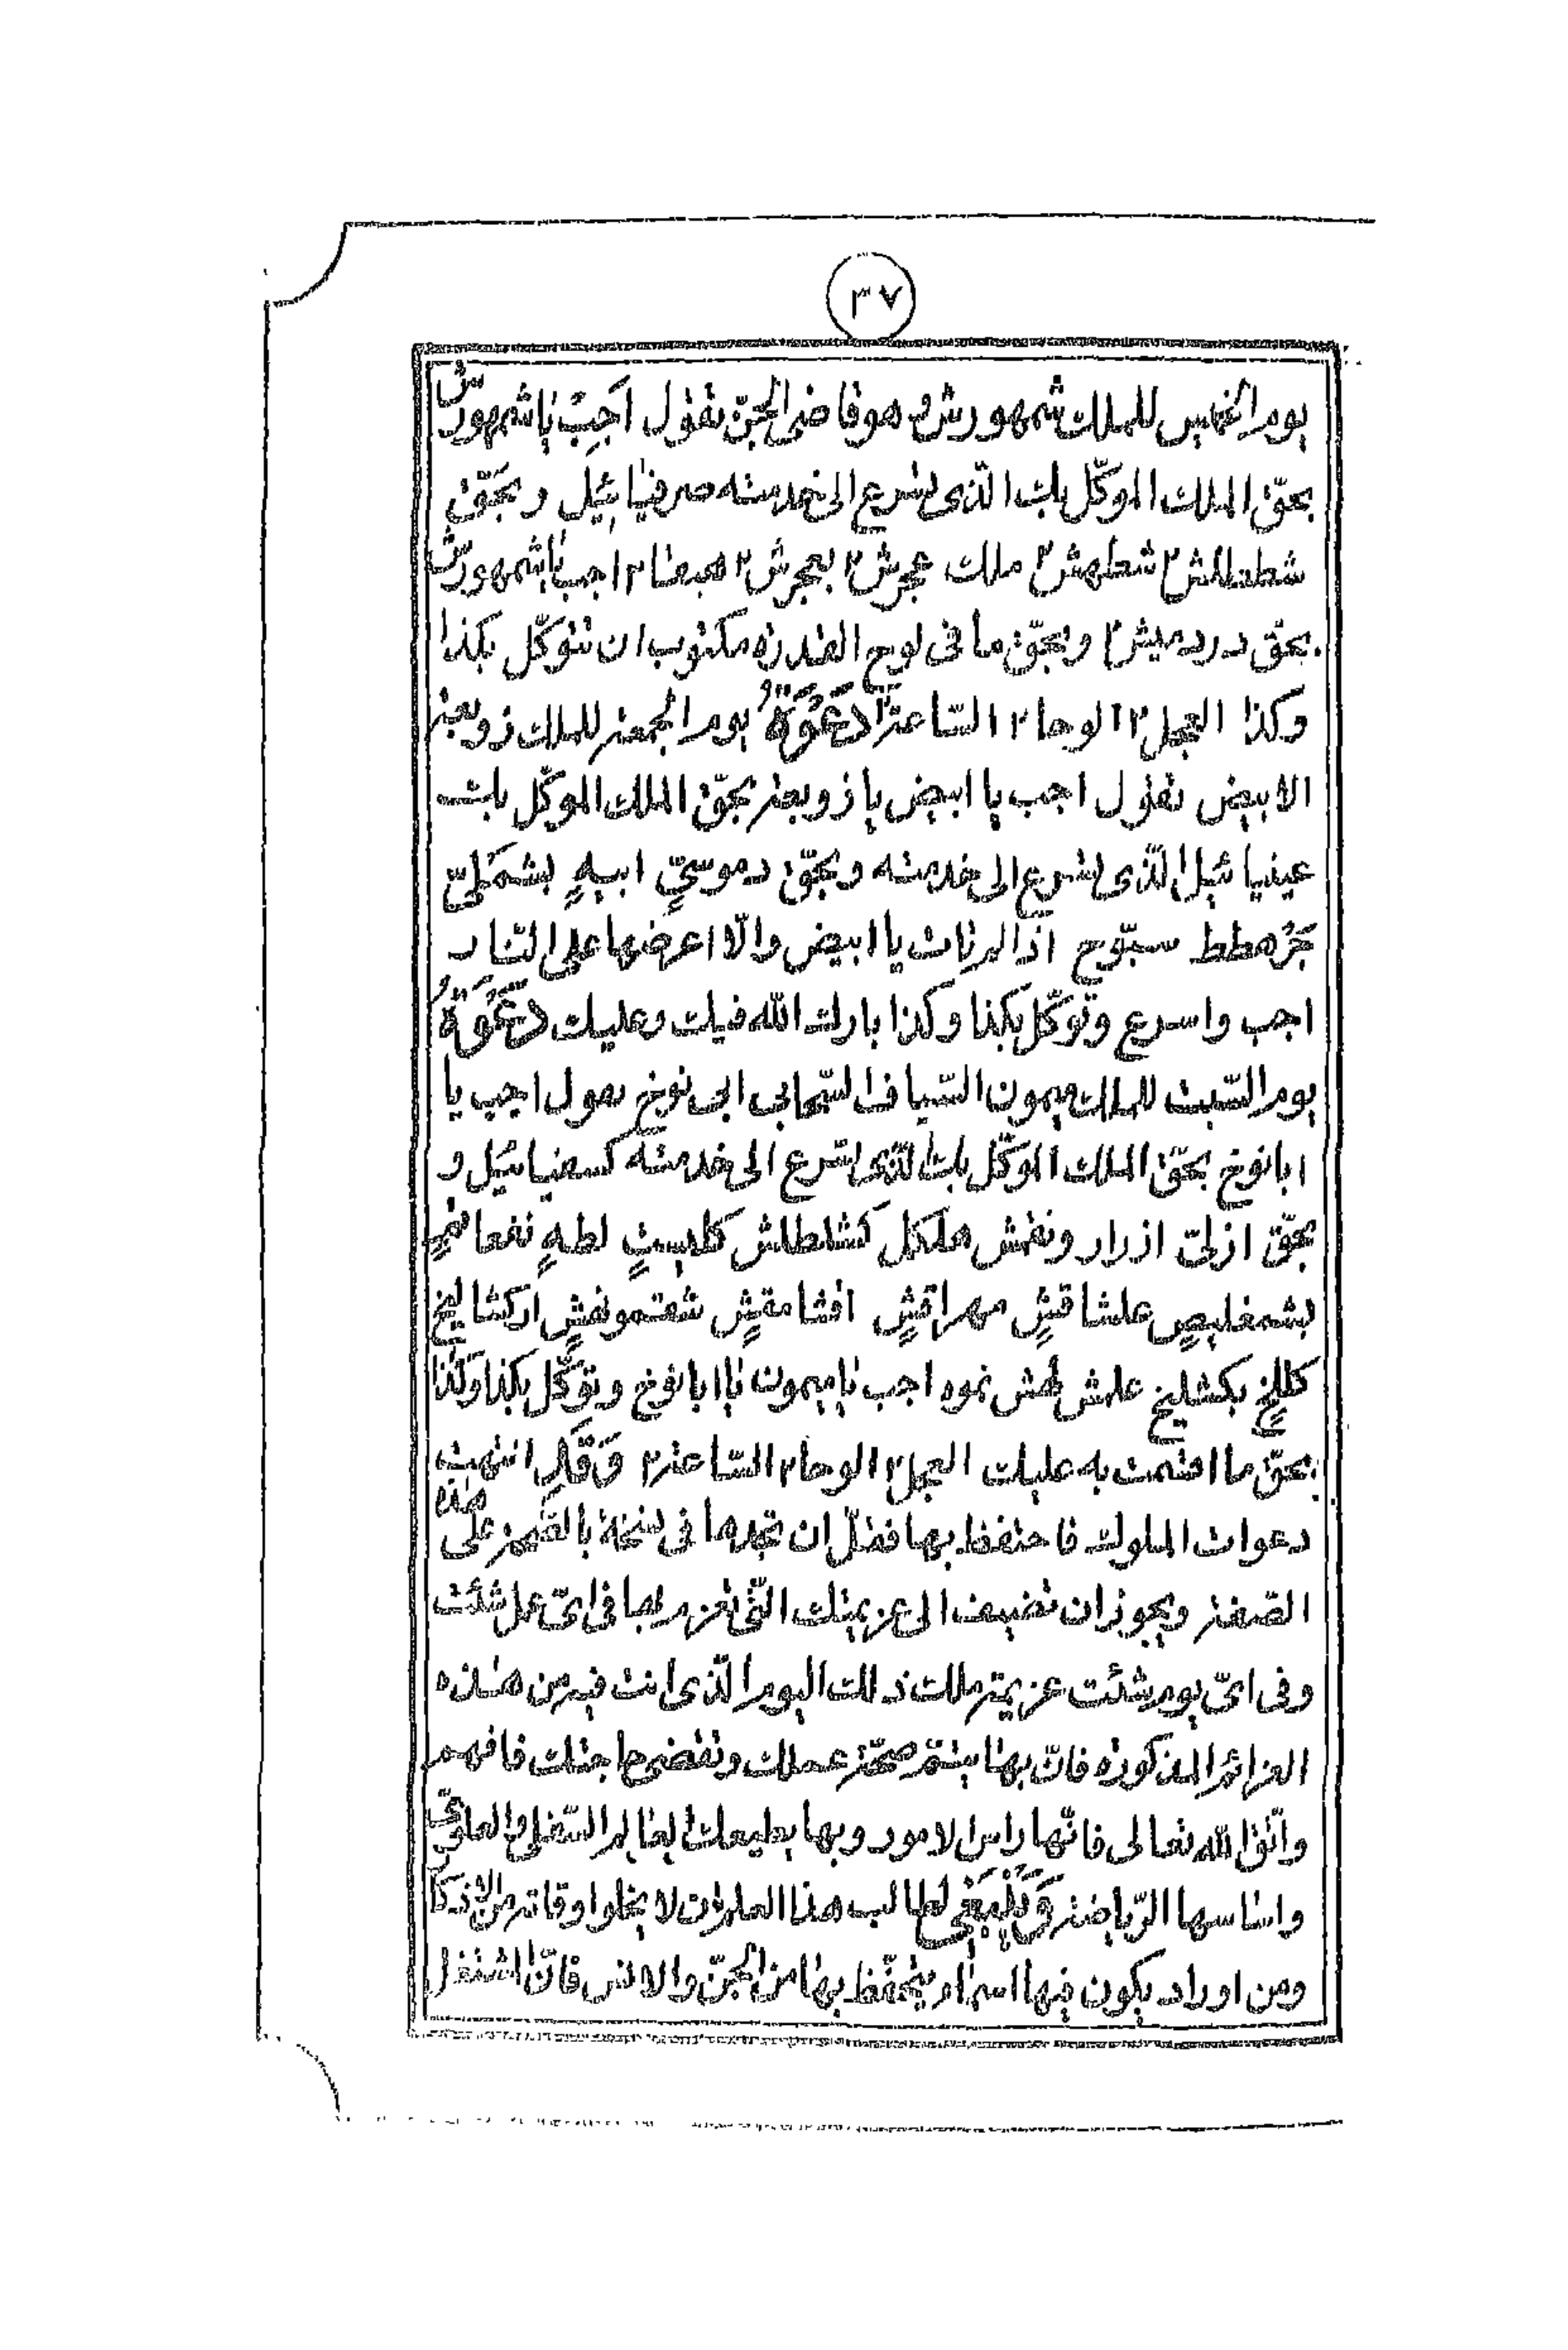 ٣٧
يوم الخميس للملك شمهورش وهو قاضى الجنّ تقول اَجِبْ يا شمهورش
بحقّ الملك الموكّل بك الّذى تسرع الى خدمته صرفيائيل وبحَقّ
شططلش ٢ شطهش ٢ ملك عجرش ٢ بعجرش ٢ اجب يا شمهورش
بحقّ دردميش ٢ وبحقّ ما فى لوح القدرة مكتوب ان تتوكّل بكذا
وكذا العجل ٢ الوحا ٢ السّاعة ٢ دَعْوَةُ يوم الجمعة للملك زوبعة
الابيض تقول اجب يا ابيض يا زوبعة بحقّ الملك الموكّل بك
عينيائيل الّذى تسرع الى خدمته وبحقّ دموسىٍّ ابيهٍ بشمَلىّ
سبّوح يا ابيض والّا اعرضها على النّار
اجب واسرع وتوكّل بكذا وكذا بارك الله فيك وعليك دَعْوَةُ
يوم السّبت للملك ميمون السّيّاف السّحابى ابى نوخ تقول اجب يا
ابا نوخ بحقّ الملك الموكّل بك الّذى تسرع الى خدمته كسفيائيل و
بحقّ ازلىّ ازرار ونقش هلكل كشلطلش لطهٍ
بشمغليصٍ علشاقشٍ مهراقشٍ اقشامقشٍ شقمونهشٍ اركشاليخ
بكشليخ علمش نموه اجب يا ميمون يا ابا نوخ وتوكّل بكذا وكذا
بحقّ ما اقسمت به عليك العجل ٢ الوحا ٢ السّاعة ٢ وَقَدِ انتهت
دعوات الملوك فاحتفظ بها فقلّ ان تجدها فى نسخة على هذه
الصّفة ويجوز ان تضيف الى عزيمتك الّتى تعزم بها فى اىّ عمل شئت
وفى اىّ يوم شئت عزيمة ملك ذلك اليوم الّذى انت فيه من هذه
العزائم المذكورة فانّ بها يتمّ صحّة عملك وتقضى حاجتك فافهم
واتّق الله تعالى فانّها راس الامور وبها يطيعك العالم السّفلى والعلوىّ
واساسها الرّياضة وَيَنْبَغِى لطالب هذا العلم ان لا يخلوا اوقاته من الاذكار
ومن اوراد يكون فيها اسرار يتحفّظ بها من الجنّ والانس فانّ اشتغل